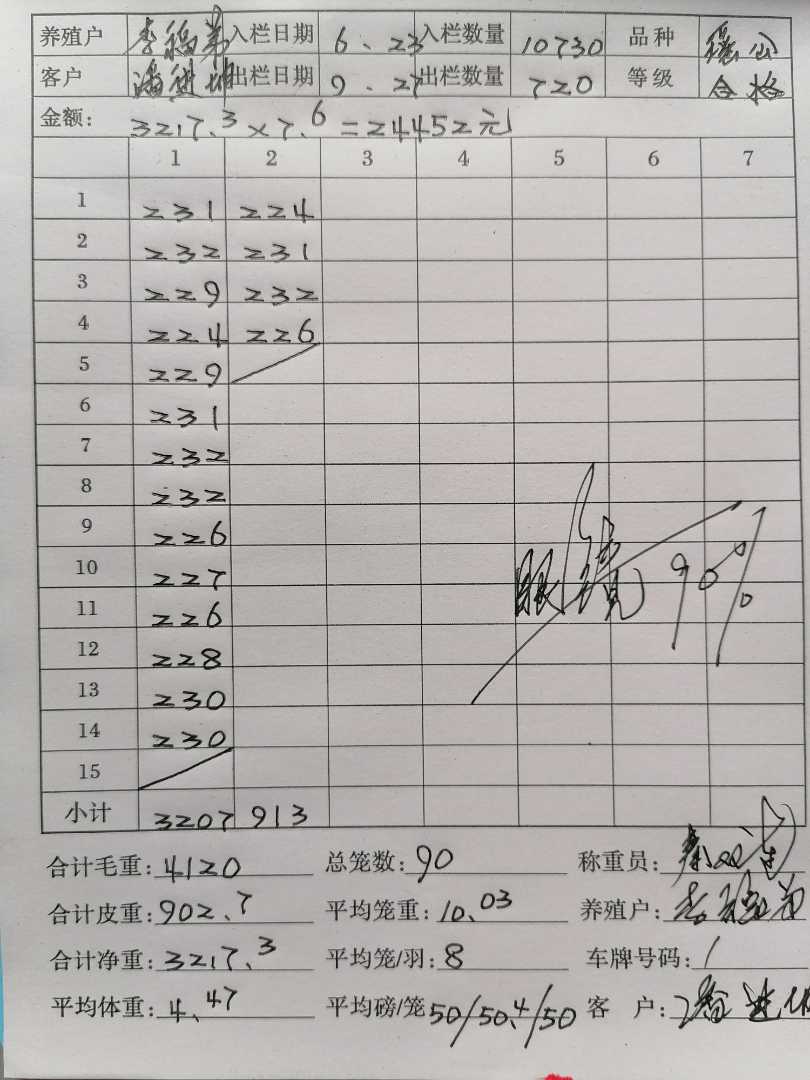 养殖户 李福弟 入栏日期 6、23 入栏数量 10730 品种
客户 出栏日期 9、27 出栏数量 720 等级 合格
金额: 3217.3×7.6=24452元
1 2 3 4 5 6 7
1 231 224
2 232 231
3 229 232
4 224 226
5 229
6 231
7 232
8 232
9 226
10 227
11 226
12 228
13 230
14 230
15
眼镜 90%
小计 3207 913
合计毛重: 4120 总笼数: 90 称重员:
合计皮重: 902.7 平均笼重: 10.03 养殖户: 李福弟
合计净重: 3217.3 平均笼/羽: 8 车牌号码: /
平均体重: 4.47 平均磅/笼 50/50.4/50 客 户: